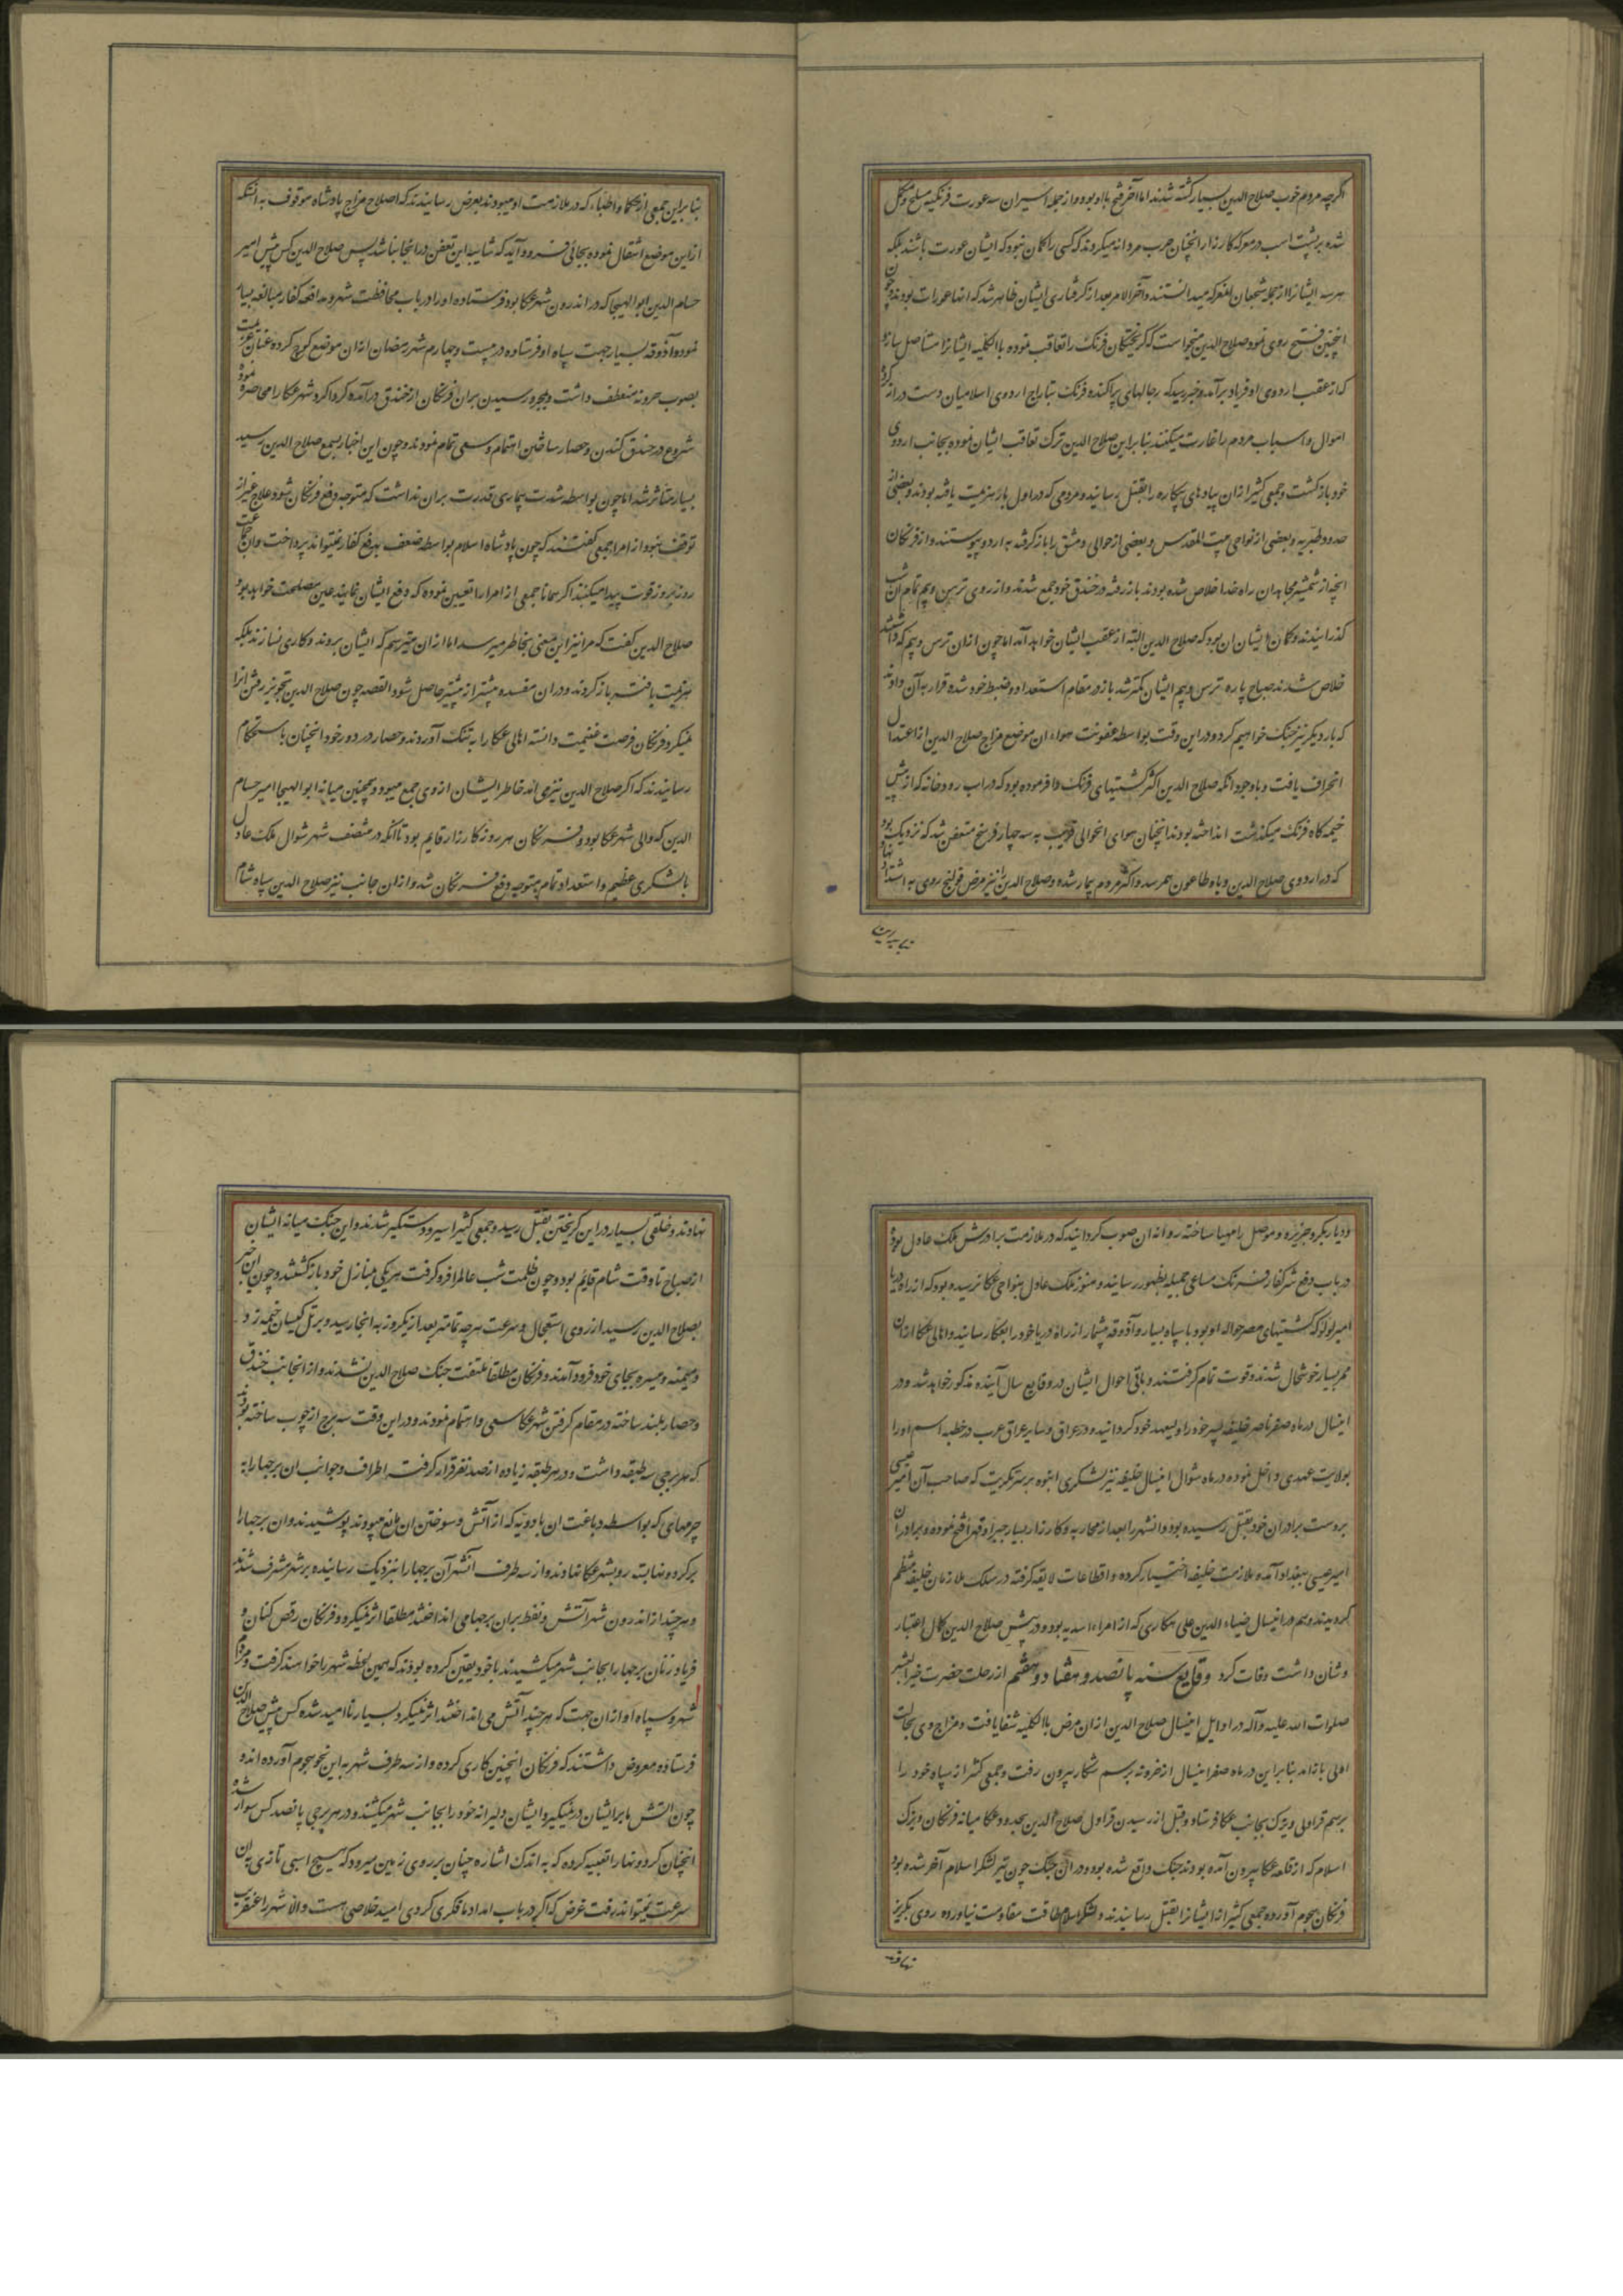 اگرچه مردم خوب صلاح الدین بسیار کشته شدند اما آخر فتح با او بود و از جمله اسیران سه عورت فرنگیه مسلح و مکمل
شده بر پشت اسب در معرکه کارزار انچنان حرب مردانه میکردند که کسی را گمان نبود که ایشان عورت باشند بلکه
هر سه ایشانرا از جمله شجعان معرکه میدانستند و آخر الامر بعد از گرفتاری ایشان ظاهر شد که انها عورات بودند و چون
اینچنین فتح روی نمود صلاح الدین میخواست که گریختگان فرنگ را تعاقب نموده بالکلیه ایشانرا متاصل سازد
که از عقب اردوی او فریاد برآمد و خبر رسید که رجالهای پراکنده فرنگ بتاراج اردوی اسلامیان دست دراز کرده
اموال و اسباب مردم را غارت میکنند بنابراین صلاح الدین ترک تعاقب ایشان نموده بجانب اردوی
خود بازگشت و جمعی کثیر ازان پیادهای بیکاره را بقتل رسانید و مردمی که در اول بار هزیمت یافته بودند و بعضی از
حدود طبریه و بعضی از نواحی بیت المقدس و بعضی از حوالی دمشق را بازگرفته به اردو پیوستند و از فرنگان
انچه از شمشیر مجاهدان راه خدا خلاص شده بودند باز رفته در خندق خود جمع شدند و از روی ترس و بیم تمام ان شب
گذرانیدند و گمان ایشان ان بود که صلاح الدین البته از عقب ایشان خواهد آمد اما چون ازان ترس و بیم که داشتند
خلاص شدند صباح پاره ترس و بیم ایشان کمتر شد باز در مقام استعداد و ضبط خود شده قرار به آن دادند
که بار دیگر نیز جنگ خواهیم کرد و در این وقت بواسطه عفونت هواء ان موضع مزاج صلاح الدین از اعتدال
انحراف یافت و باوجود انکه صلاح الدین اکثر کشتیهای فرنگ را فرموده بود که در اب رودخانه که از پیش
خیمه گاه فرنگ میگذشت انداخته بودند انچنان هوای انحوالی قریب به سه چهار فرسخ متعفن شد که نزدیک بود
که در اردوی صلاح الدین وباء طاعون بهم رسد و اکثر مردم بیمار شده و صلاح الدین را نیز مرض قولنج روی به اشتداد نهاد
بنابراین
بنابراین جمعی از حکما و اطباء که در ملازمت او میبودند بعرض رسانیدند که اصلاح مزاج پادشاه موقوف به انستکه
ازاین موضع انتقال نموده بجائی فرود آید که شایبه این تعفن در انجا نباشد پس صلاح الدین کس پیش امیر
حسام الدین ابو الهیجا که در اندرون شهر عکا بود فرستاده او را در باب محافظت شهر و مدافعه کفار مبالغه بسیار
نموده آذوقه بسیار جهت سپاه او فرستاده در بیست و چهارم شهر رمضان ازان موضع کوچ کرده عنان عزیمت
بصوب خروبه منعطف داشت و بمجرد رسیدن بران فرنگان از خندق درآمده گرداگرد شهر عکا را محاصره نموده
شروع در خندق کندن و حصار ساختن اهتمام و سعی تمام نمودند و چون این اخبار بسمع صلاح الدین رسید
بسیار متاثر شد اما چون بواسطه شدت بیماری قدرت بران نداشت که متوجه دفع فرنگان شود علاج غیر از
توقف نبود از امرا جمعی گفتند که چون پادشاه اسلام بواسطه ضعف بدفع کفار نمیتواند پرداخت و ان جماعت
روز بروز قوت پیدا میکنند اگر همانا جمعی از امرا را تعیین نموده که دفع ایشان نمایند عین مصلحت خواهد بود
صلاح الدین گفت که مرا نیز این معنی بخاطر میرسد اما ازان میترسم که ایشان بروند و کاری نسازند بلکه
هزیمت یافته بازگردند و دران مفسده بیشتر از پیشتر حاصل شود القصه چون صلاح الدین تجویز رفتن امرا
نمیکرد فرنگان فرصت غنیمت دانسته اهالی عکا را به تنگ آوردند و حصار در دور خود انچنان باستحکام
رسانیدند که اگر صلاح الدین نیز می اند خاطر ایشان ازوی جمع میبود و همچنین میانه ابو الهیجا امیر حسام
الدین که والی شهر عکا بود و فرنگان هر روز کارزار قایم بود تا انکه در منتصف شهر شوال ملک عادل
با لشکری عظیم و استعداد تمام متوجه دفع فرنگان شد و ازان جانب نیز صلاح الدین سپاه شام
و دیاربکر و جزیره و موصل را مهیا ساخته روانه ان صوب گردانید که در ملازمت برادرش ملک عادل بوده
در باب دفع شر کفار فرنگ مساعی جمیله بظهور رسانید و هنوز ملک عادل بنواحی عکا نرسیده بود که از راه دریا
امیر لولو که کشتیهای مصر حواله او بود با سپاه بسیار و آذوقه بیشمار از راه دریا خود را بعکا رسانید و اهالی عکا ازان
ممر بسیار خوشحال شدند و قوت تمام گرفتند و باقی احوال ایشان در وقایع سال آینده مذکور خواهد شد و در
اینسال در ماه صفر ناصر خلیفه پسر خود را ولیعهد خود گردانید و در عراق و سایر عراق عرب در خطبه اسم او را
بولایت عهدی داخل نموده در ماه شوال اینسال خلیفه نیز لشکری انبوه بر سر تکریت که صاحب آن امیر عیسی
بر دست برادران خود بقتل رسیده بود و انشهر را بعد از محاربه و کارزار بسیار جبرا و قهرا فتح نموده و برادران
امیر عیسی ببغداد آمده ملازمت خلیفه اختیار کرده و اقطاعات لایقه گرفته در سلک ملازمان خلیفه منتظم
گردیدند و هم در اینسال ضیاء الدین علی هکاری که از امراء اسدیه بود و در پیش صلاح الدین کمال اعتبار
و شان داشت وفات کرد وقایع سنه پانصد و هفتاد و هفتم از رحلت حضرت خیر البشر
صلوات الله علیه و آله در اوایل اینسال صلاح الدین ازان مرض بالکلیه شفا یافت و مزاج وی بحالت
اصلی باز امد بنابراین در ماه صفر اینسال از خروبه برسم شکار بیرون رفت و جمعی کثیر از سپاه خود را
برسم قراولی و یزک بجانب عکا فرستاد و قبل از رسیدن قراول صلاح الدین بحدود عکا میانه فرنگان و یزک
اسلام که از قلعه عکا بیرون آمده بودند جنگ واقع شده بود و دران جنگ چون تیر لشکر اسلام آخر شده بود
فرنگان هجوم آورده جمعی کثیر از ایشانرا بقتل رسانیدند و لشکر اسلام طاقت مقاومت نیاورده روی بگریز
نهادند
نهادند و خلقی بسیار در این گریختن بقتل رسید و جمعی کثیر اسیر و دستگیر شدند و این جنگ میانه ایشان
از صباح تا وقت شام قایم بود و چون ظلمت شب عالم را فرو گرفت هر یکی بمنازل خود بازگشتند و چون این خبر
بصلاح الدین رسید از روی استعجال و سرعت هرچه تمامتر بعد از یکروز به انجا رسید و بر تل کیسان خیمه زد
و میمنه و میسره بجای خود فرود آمدند و فرنگان مطلقا ملتفت جنگ صلاح الدین نشدند و از انجانب خندق
و حصار بلند ساخته در مقام گرفتن شهر عکا سعی و اهتمام نمودند و در این وقت سه برج از چوب ساخته بودند
که هر برجی سه طبقه داشت و در هر طبقه زیاده از صد نفر قرار گرفته اطراف و جوانب ان برجها را به
چرمهای که بواسطه دباغت ان بادویه که از آتش و سوختن ان مانع میبودند پوشیدند و ان برجها را
برگردونها بسته رو بشهر عکا نهادند و از سه طرف انشهر آن برجها را بنزدیک رسانیده بر شهر مشرف شدند
و هر چند از اندرون شهر آتش و نفط بران برجها می انداختند مطلقا اثر نمیکرد و فرنگان رقص کنان و
فریاد زنان برجها را بجانب شهر میکشیدند با خود یقین کرده بودند که همین لحظه شهر را خواهند گرفت و مردم
شهر و سپاه او ازان جهت که هر چند آتش می انداختند اثر نمیکرد بسیار ناامید شده کس پیش صلاح الدین
فرستاده معروض داشتند که فرنگان اینچنین کاری کرده و از سه طرف شهر به این نحو هجوم آورده اند و
چون اتش ما بر ایشان در نمیگیرد ایشان دلیرانه خود را بجانب شهر میکشند و در هر برجی پانصد کس سوار شده
انچنان گردونها را تعبیه کرده که به اندک اشاره چنان بر روی زمین میرود که هیچ اسبی تازی به ان
سرعت نمیتواند رفت غرض که اگر در باب امداد ما فکری کردی امید خلاصی هست و الا شهر را عنقریب